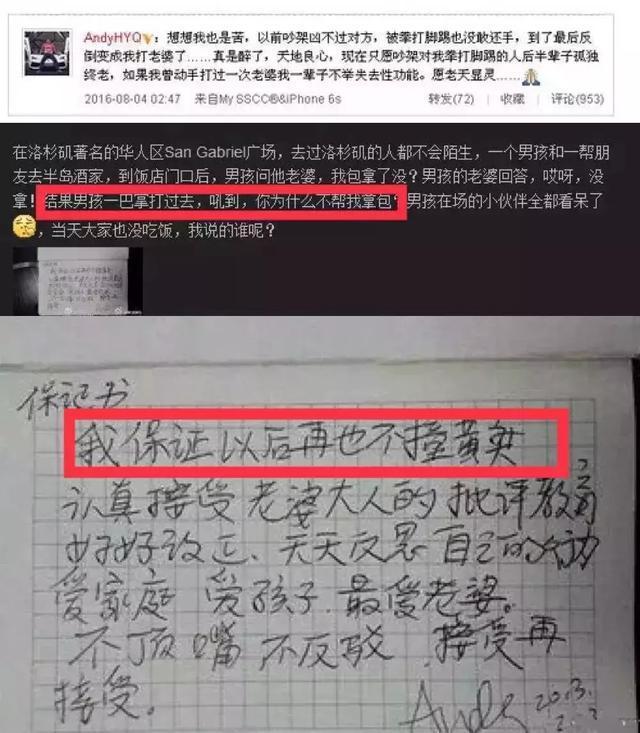 AndyHYQ：想想我也是苦，以前吵架凶不过对方，被拳打脚踢也没敢还手，到了最后反
倒变成我打老婆了……真是醉了，天地良心，现在只愿吵架对我拳打脚踢的人后半辈子孤独
终老，如果我曾动手打过一次老婆我一辈子不举失去性功能。愿老天显灵……
2016-08-04 02:47 来自My SSCC®&iPhone 6s 转发(72) 收藏 评论(953)
在洛杉矶著名的华人区San Gabriel广场，去过洛杉矶的人都不会陌生，一个男孩和一帮朋
友去半岛酒家，到饭店门口后，男孩问他老婆，我包拿了没？男孩的老婆回答，哎呀，没
拿！结果男孩一巴掌打过去，吼到，你为什么不帮我拿包？男孩在场的小伙伴全都看呆了
，当天大家也没吃饭，我说的谁呢？
保证书
我保证以后再也不撞黄奕
认真接受老婆大人的批评教育
好好改正、天天反思自己的行动
爱家庭 爱孩子.最爱老婆。
不顶嘴 不反驳.接受再
接受。
Andy 2013.